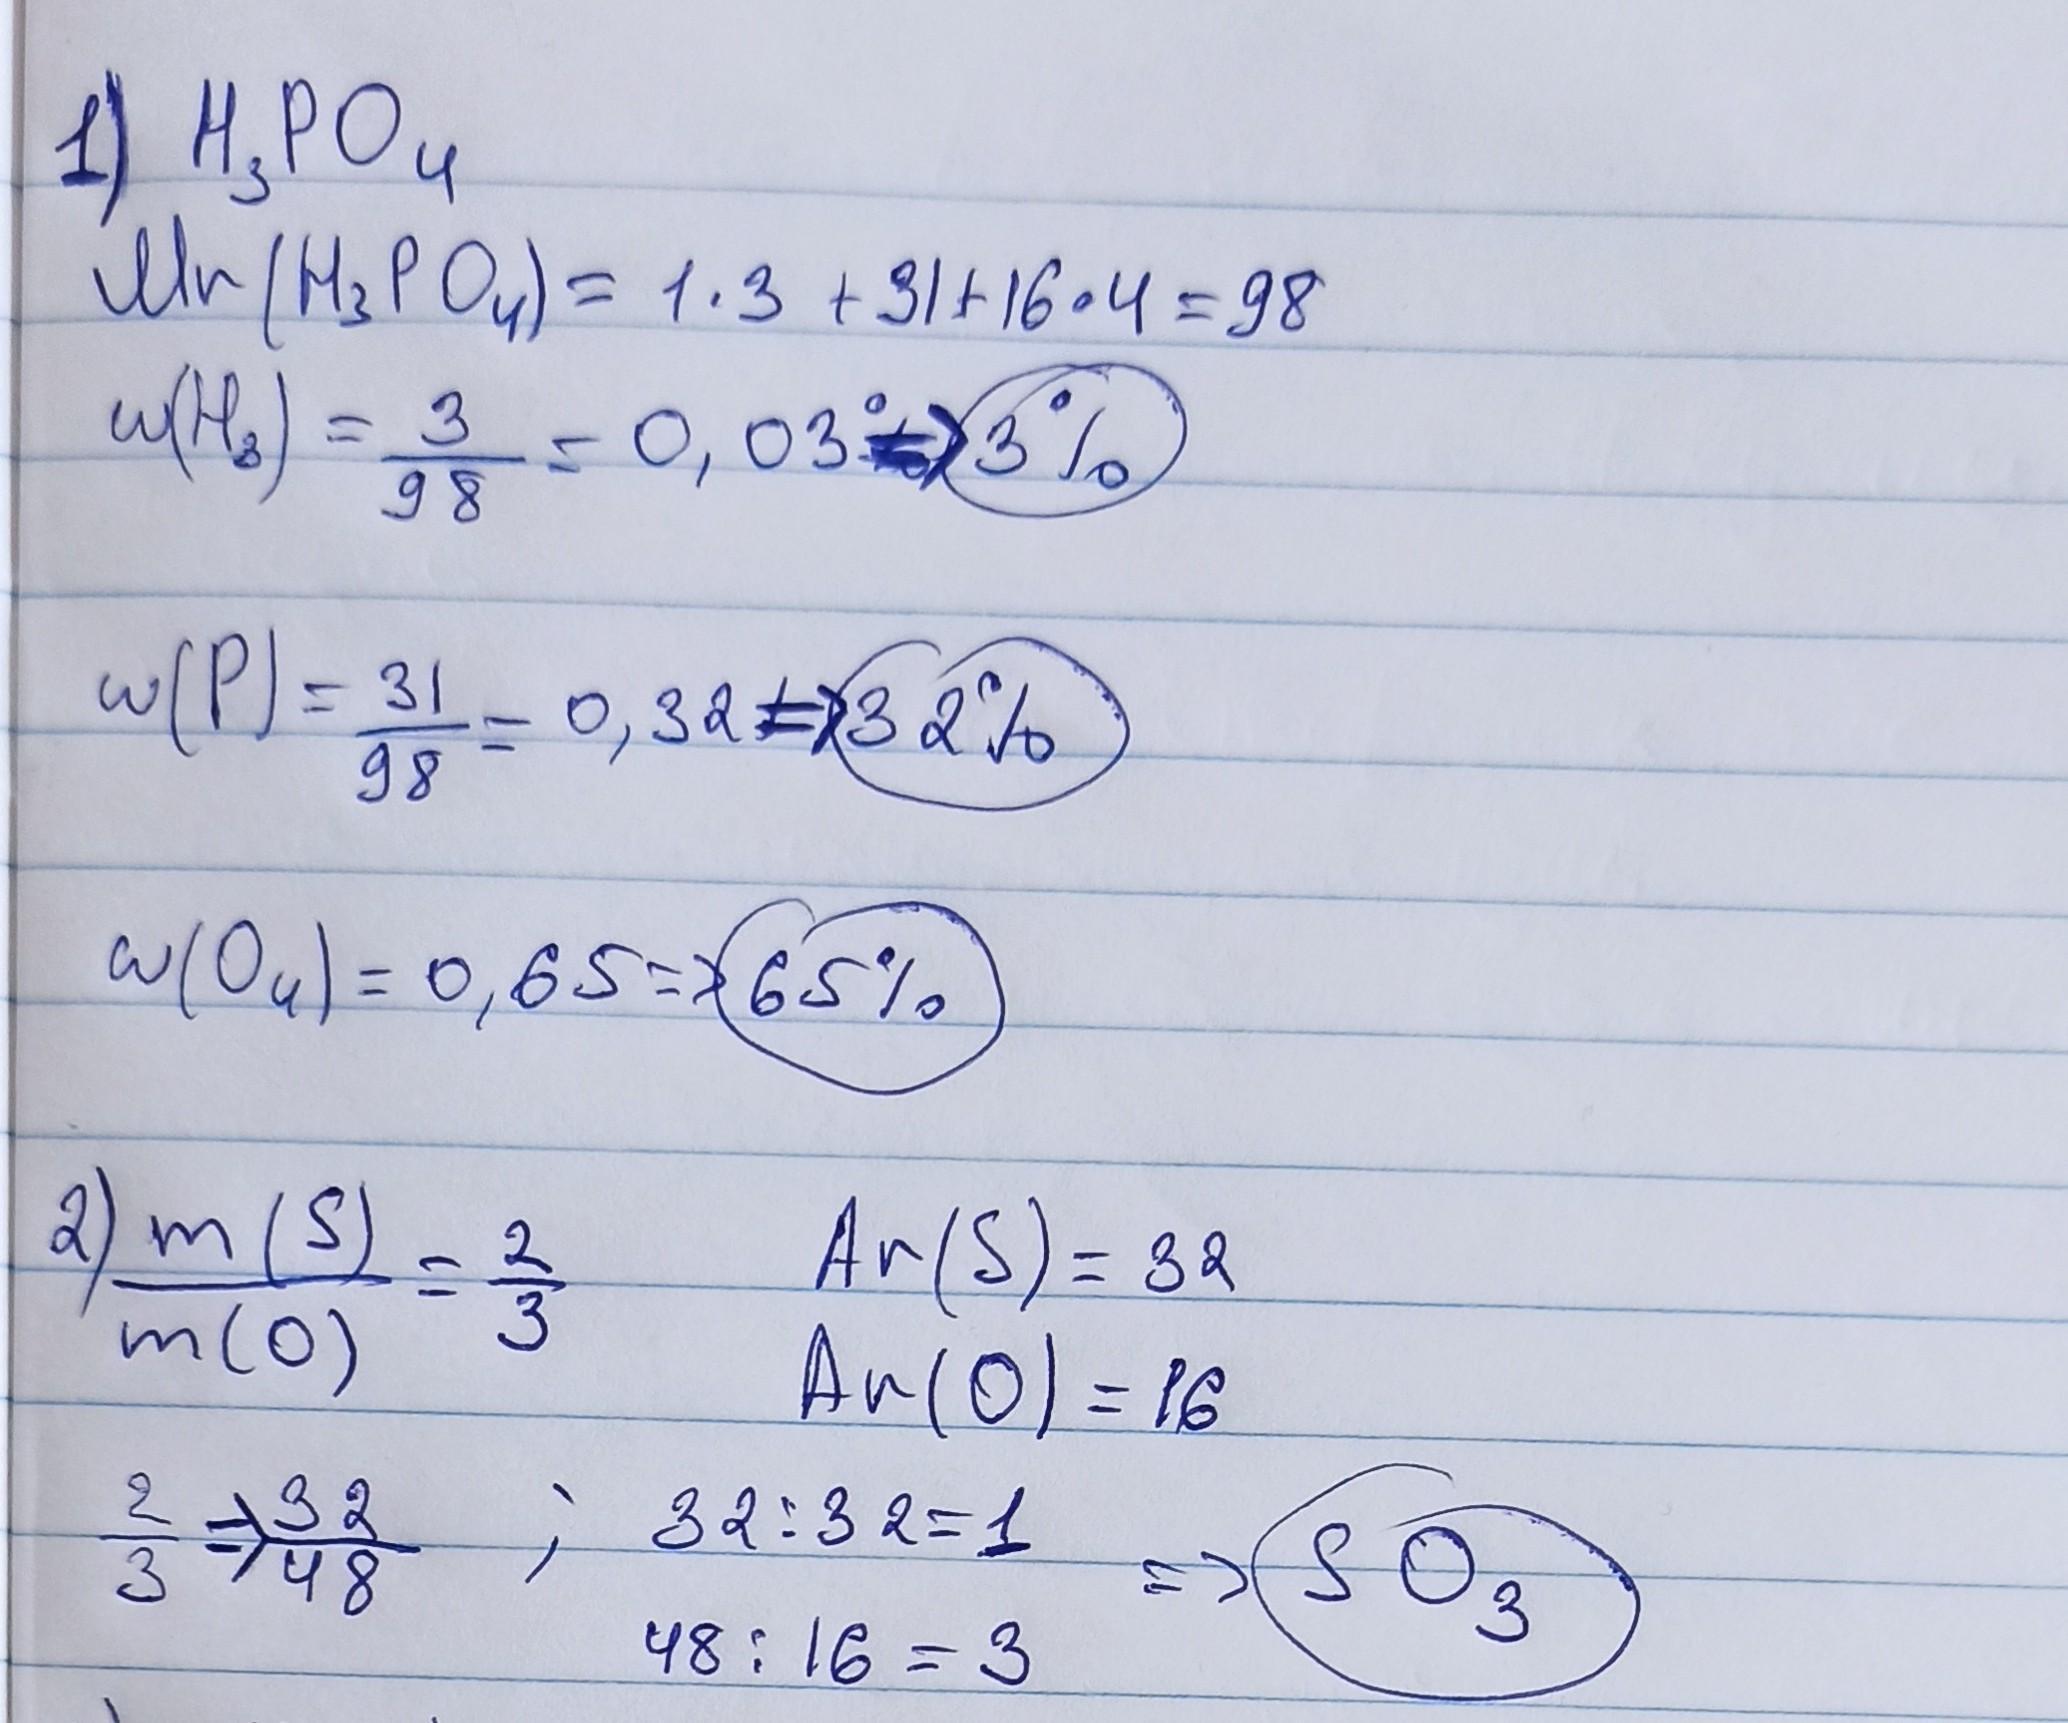 1) H₃PO₄
Mr(H₃PO₄) = 1·3 + 31 + 16·4 = 98
w(H₃) = 3/98 = 0,03 => 3%
w(P) = 31/98 = 0,32 => 32%
w(O₄) = 0,65 => 65%
2) m(S)/m(O) = 2/3 Ar(S) = 32
Ar(O) = 16
2/3 => 32/48 ; 32:32=1 => SO₃
48:16=3